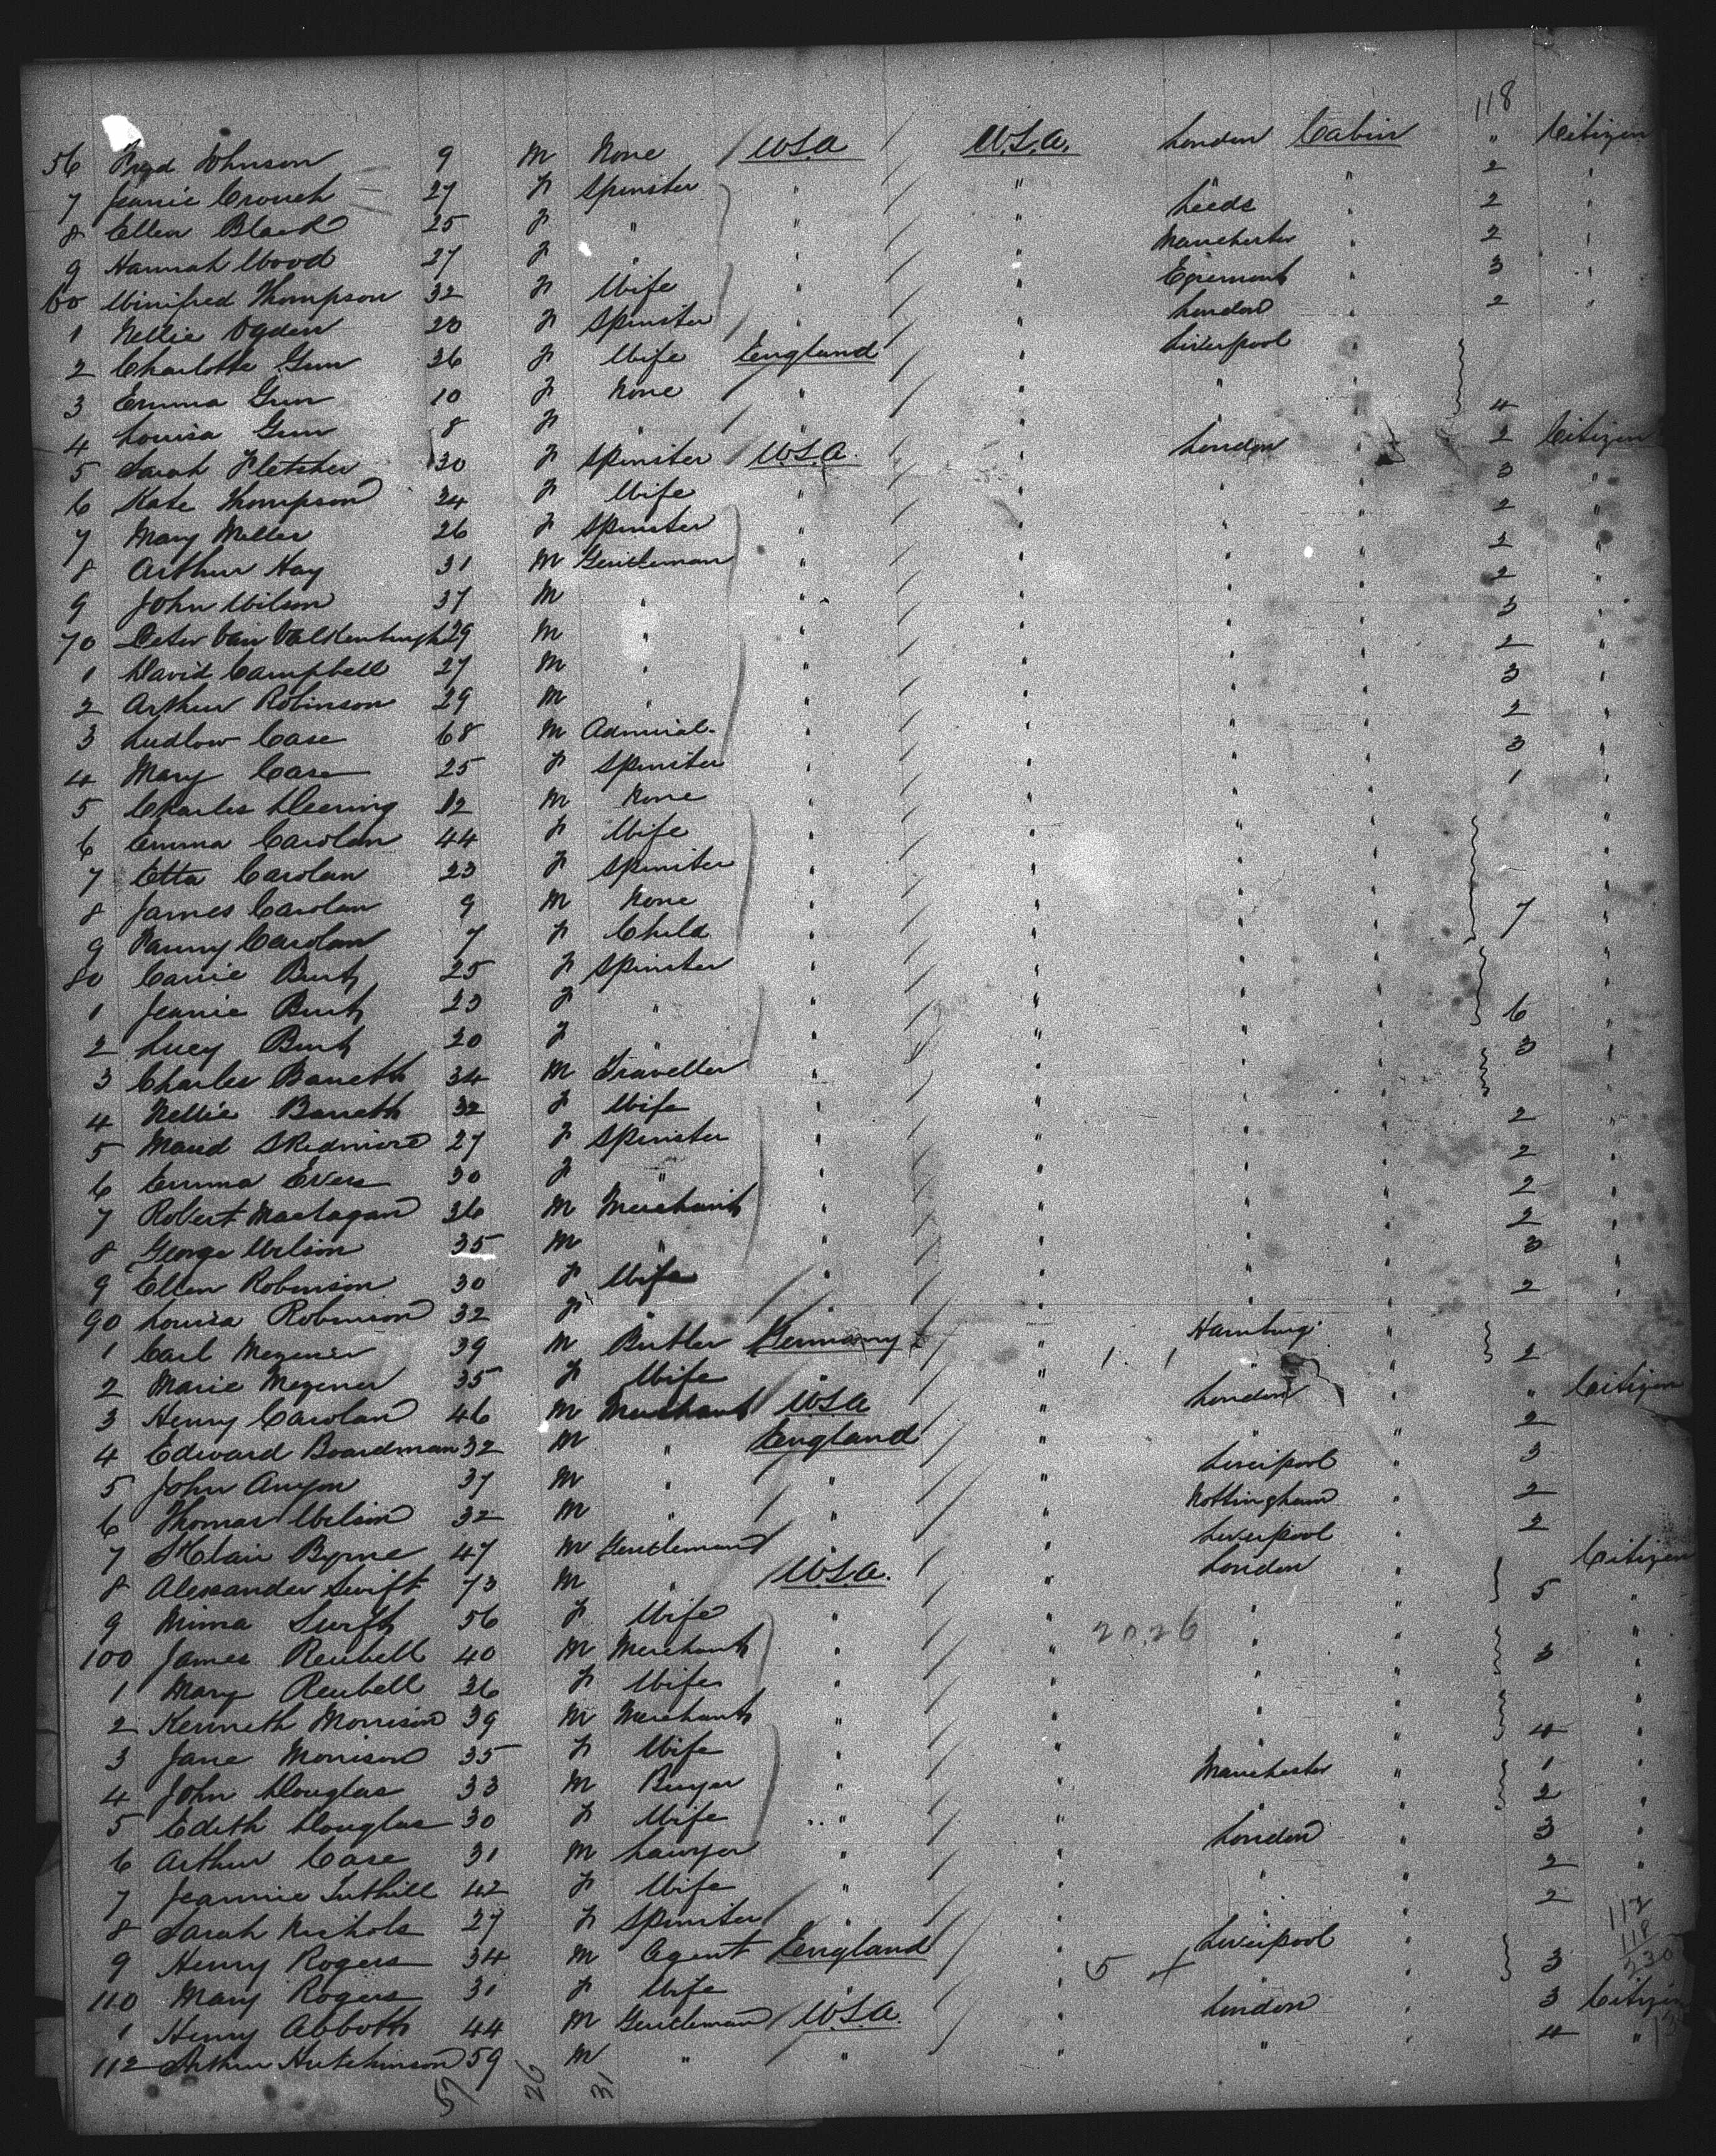 118
56 Johnson 9 M None U.S.A U.S.A. London Cabin " Citizen
7 Jeanie Crouch 27 F Spinster " " " " 2 "
8 Ellen Black 25 F " " " Leeds " 2 "
9 Hannah Wood 27 F " " " Manchester " 2 "
60 Winifred Thompson 32 F Wife " " Egremont " 3 "
1 Nellie Ogden 20 F Spinster " " London " 2 "
2 Charlotte Gun 36 F Wife England " Liverpool "
3 Emma Gun 10 F None " " " "
4 Louisa Gun 8 F " " " " " 4
5 Sarah Fletcher 30 F Spinster U.S.A. " London " 2 Citizen
6 Kate Thompson 34 F Wife " " " " 3 "
7 Mary Miller 26 F Spinster " " " " 2 "
8 Arthur Hay 31 M Gentleman " " " " 2 "
9 John Wilson 37 M " " " " " 2 "
70 Peter Van Valkenburgh 29 M " " " " " 3 "
1 David Campbell 27 M " " " " " 2 "
2 Arthur Robinson 29 M " " " " " 3 "
3 Ludlow Case 68 M Admiral. " " " " 2 "
4 Mary Case 25 F Spinster " " " " 3 "
5 Charles Deering 12 M None " " " " 1 "
6 Emma Carolan 44 F Wife " " " "
7 Etta Carolan 23 F Spinster " " " "
8 James Carolan 9 M None " " " "
9 Fanny Carolan 7 F Child " " " " 7 "
80 Carrie Burt 25 F Spinster " " " " "
1 Jeanie Burt 23 F " " " " " "
2 Lucy Burt 20 F " " " " " 6 "
3 Charles Barrett 34 M Traveller " " " " 3 "
4 Nellie Barrett 32 F Wife " " " " "
5 Maud Skidmore 27 F Spinster " " " " 2 "
6 Emma Evers 30 F " " " " " 2 "
7 Robert Maclagan 36 M Merchant " " " " 2 "
8 George Wilson 35 M " " " " " 2 "
9 Ellen Robinson 30 F Wife " " " " 3 "
90 Louisa Robinson 32 F " " " " " 2 "
1 Carl 39 M Butler Germany " Hamburg "
2 Marie 35 F Wife " " " " 2
3 Henry Carolan 46 M Merchant U.S.A " London " " Citizen
4 Edward Boardman 32 M " England " " " 2
5 John Anyon 37 M " " " Liverpool " 3
6 Thomas Wilson 32 M " " " Nottingham " 2
7 StClair Byrne 47 M Gentleman " " Liverpool " 2
8 Alexander Swift 73 M " U.S.A. " London " Citizen
9 Mima Swift 56 F Wife " " " " 5 "
20.26
100 James Reubell 40 M Merchant " " " " "
1 Mary Reubell 36 F Wife " " " " 3 "
2 Kenneth Morrison 39 M Merchant " " " " "
3 Jane Morrison 35 F Wife " " " " 4 "
4 John Douglas 33 M Buyer " " Manchester " 1 "
5 Edith Douglas 30 F Wife " " " " 2 "
6 Arthur Case 31 M Lawyer " " London " 3 "
7 Jeannie Tuthill 42 F Wife " " " " 2 "
8 Sarah Nichols 27 F Spinster " " " " 2 "
112
118
230
9 Henry Rogers 34 M Agent England " 5 Liverpool "
110 Mary Rogers 31 F Wife " " " " 3
1 Henry Abbott 44 M Gentleman U.S.A. " London " 3 Citizen
112 Arthur Hutchinson 59 M " " " " " 4 "
57 26 31